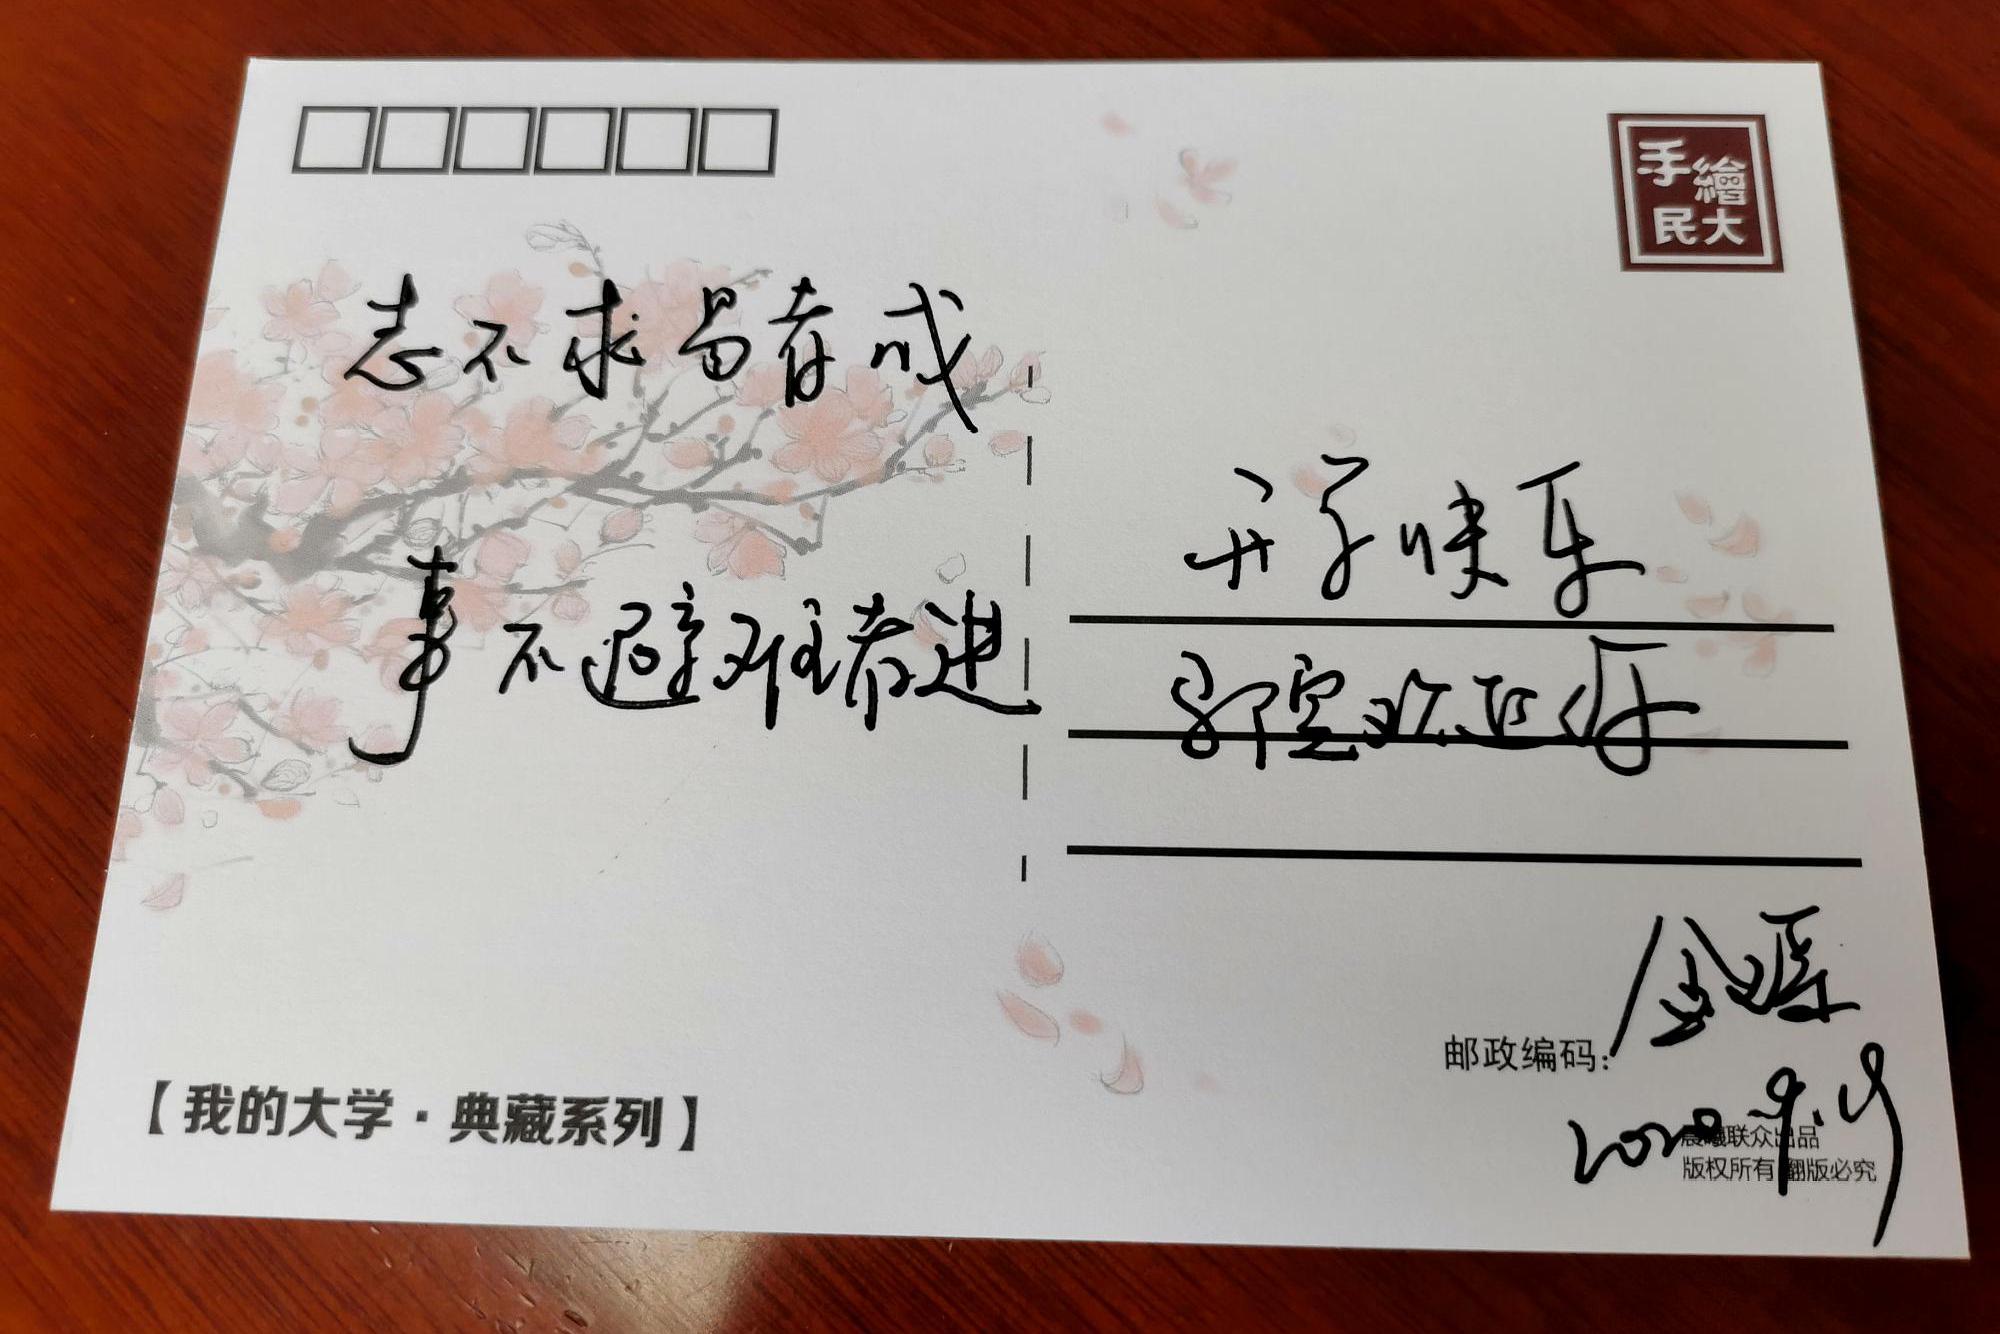 手繪
民大
志不求易者成
事不避难者进
开学快乐
邹宝欢迎你
金源
邮政编码:
2020.9.19
晨曦联众出品
版权所有 翻版必究
【我的大学·典藏系列】